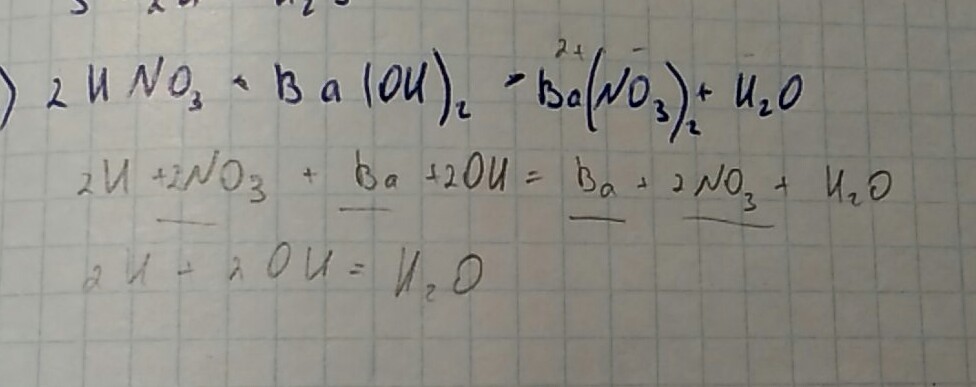 ) 2 HNO₃ + Ba(OH)₂ = Ba²⁺(NO₃⁻)₂ + H₂O
2H + 2NO₃ + Ba + 2OH = Ba + 2NO₃ + H₂O
2H + 2OH = H₂O